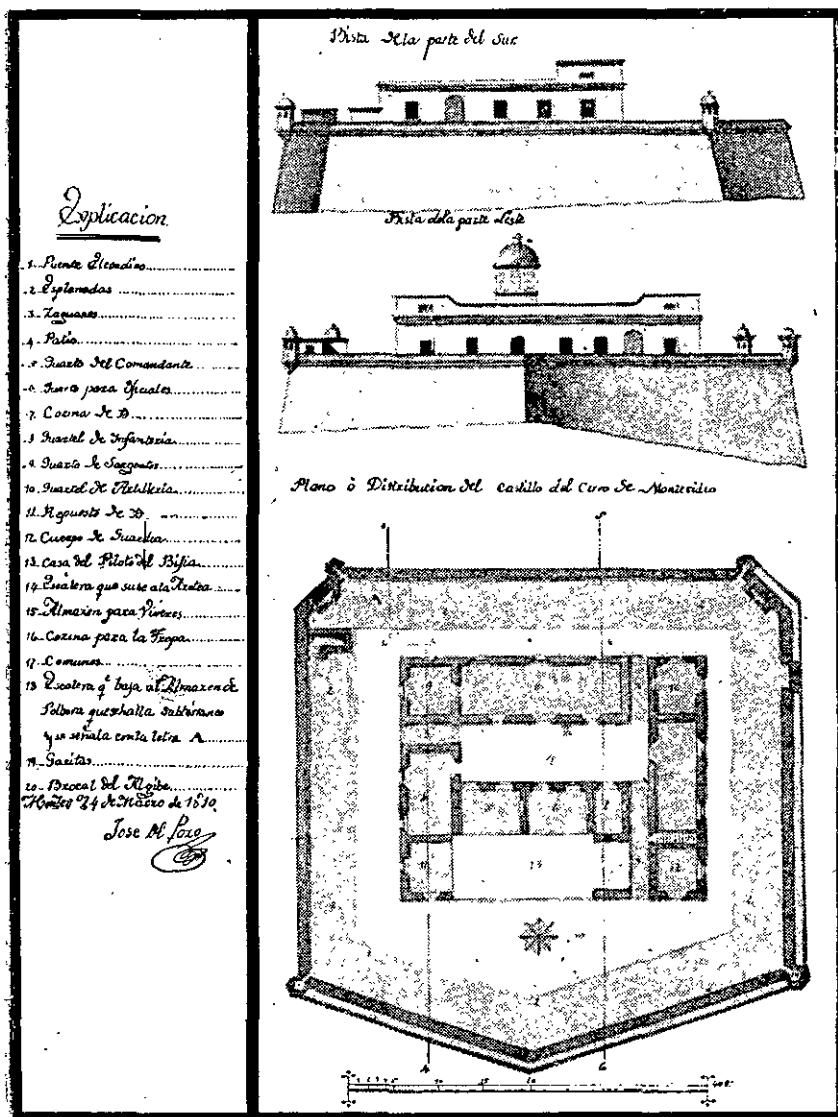 Explicacion
1. Puente
2. Esplanadas
3. Zaguanes
4. Patio
5. Quarto del Comandante
6. para Oficiales
7. Cocina de Yd.
8. Quartel de Infanteria
9. Quarto de Sargentos
10. Quartel de Artilleria
11. Repuesto de Yd.
12 Cuerpo de Guardia
13. Casa del Piloto del
14 Escalera que sube ala Azotea
15 Almazen para Viveres
16 Cozina para la Tropa
17 Comunes
18 Escalera q.e baja al Almazen de
Polbora que se halla
y se señala con la letra A
19. Garitas
20. Brocal del Algibe
24 de Marzo de 1810.
Jose del Pozo
Vista de la parte del Sur.
Vista de la parte Leste
Plano ò Distribucion del Castillo del Cerro de Montevideo
4
13
12
A